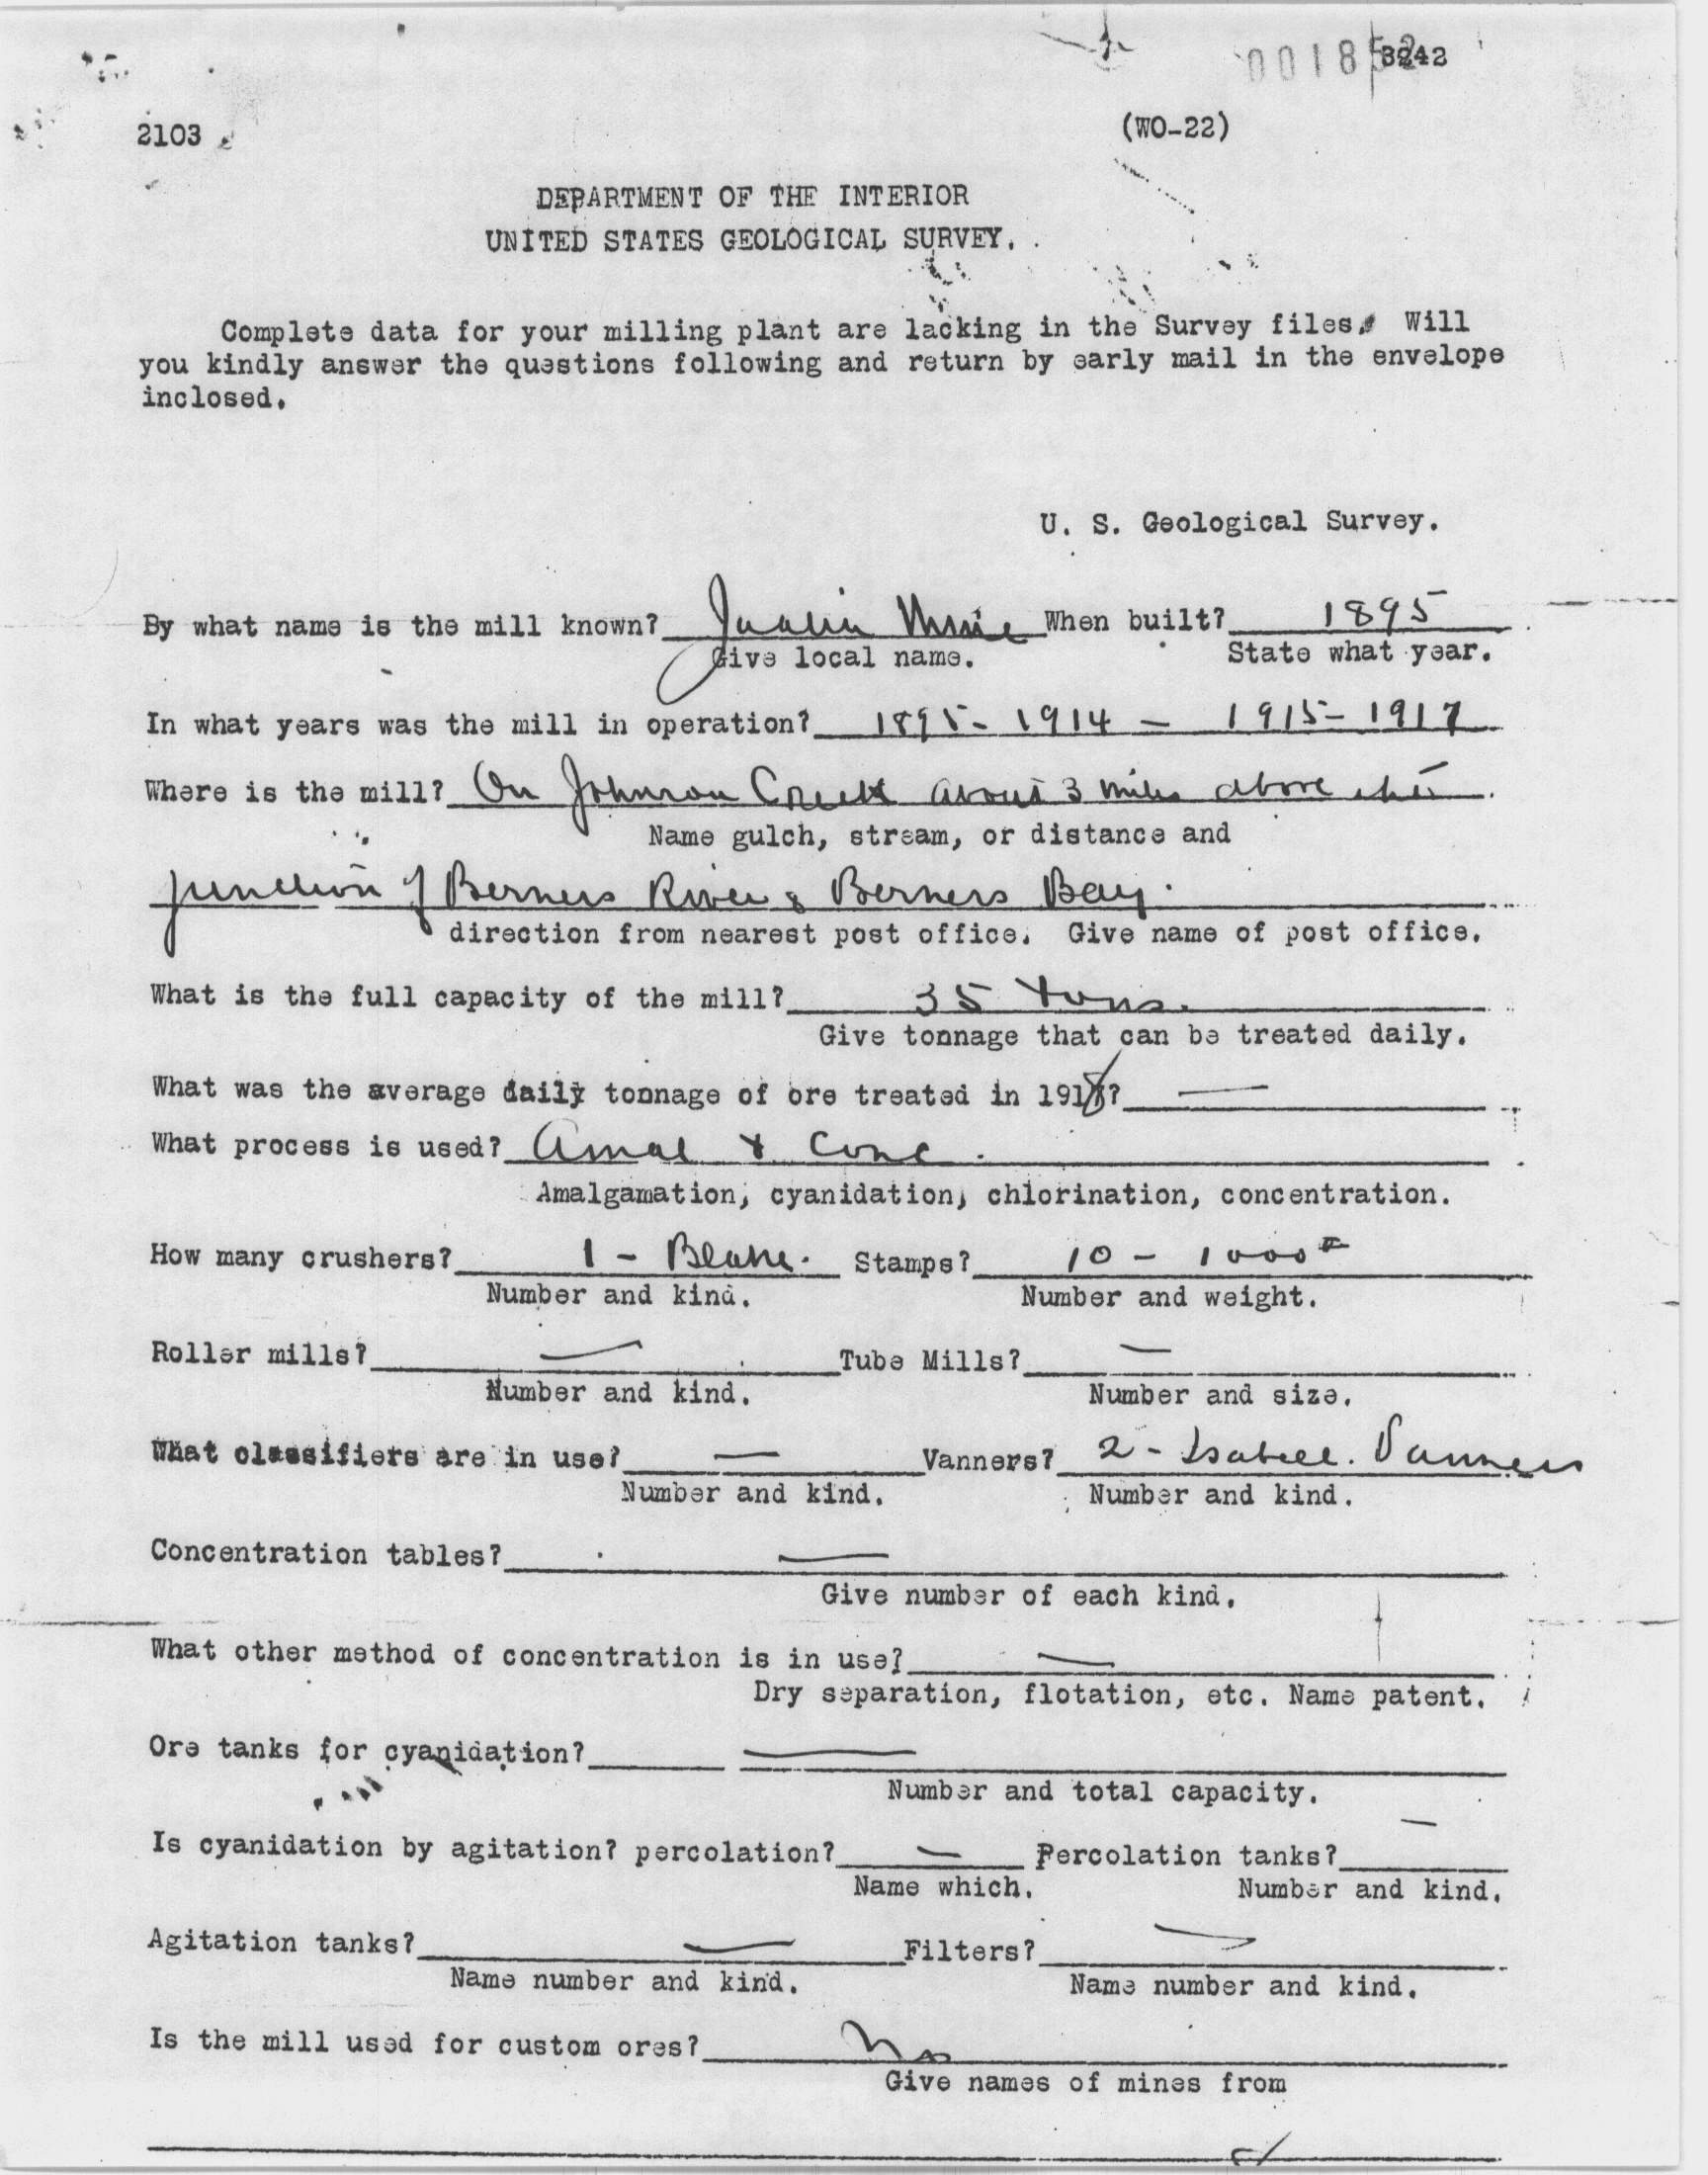 001852 3242
2103 (WO-22)
DEPARTMENT OF THE INTERIOR
UNITED STATES GEOLOGICAL SURVEY.
Complete data for your milling plant are lacking in the Survey files. Will
you kindly answer the questions following and return by early mail in the envelope
inclosed.
U. S. Geological Survey.
By what name is the mill known? Jualin Mine When built? 1895
Give local name. State what year.
In what years was the mill in operation? 1895-1914 - 1915-1917
Where is the mill? On Johnson Creek about 3 miles above the
Name gulch, stream, or distance and
junction of Berners River & Berners Bay.
direction from nearest post office. Give name of post office.
What is the full capacity of the mill? 35 tons.
Give tonnage that can be treated daily.
What was the average daily tonnage of ore treated in 1918? —
What process is used? Amal & Conc.
Amalgamation, cyanidation, chlorination, concentration.
How many crushers? 1 - Blake. Stamps? 10 - 1000#
Number and kind. Number and weight.
Roller mills? — Tube Mills? —
Number and kind. Number and size.
What classifiers are in use? — Vanners? 2 - Isabell. Vanners
Number and kind. Number and kind.
Concentration tables? —
Give number of each kind.
What other method of concentration is in use? —
Dry separation, flotation, etc. Name patent.
Ore tanks for cyanidation? —
Number and total capacity.
Is cyanidation by agitation? percolation? — Percolation tanks? —
Name which. Number and kind.
Agitation tanks? — Filters? —
Name number and kind. Name number and kind.
Is the mill used for custom ores? No
Give names of mines from